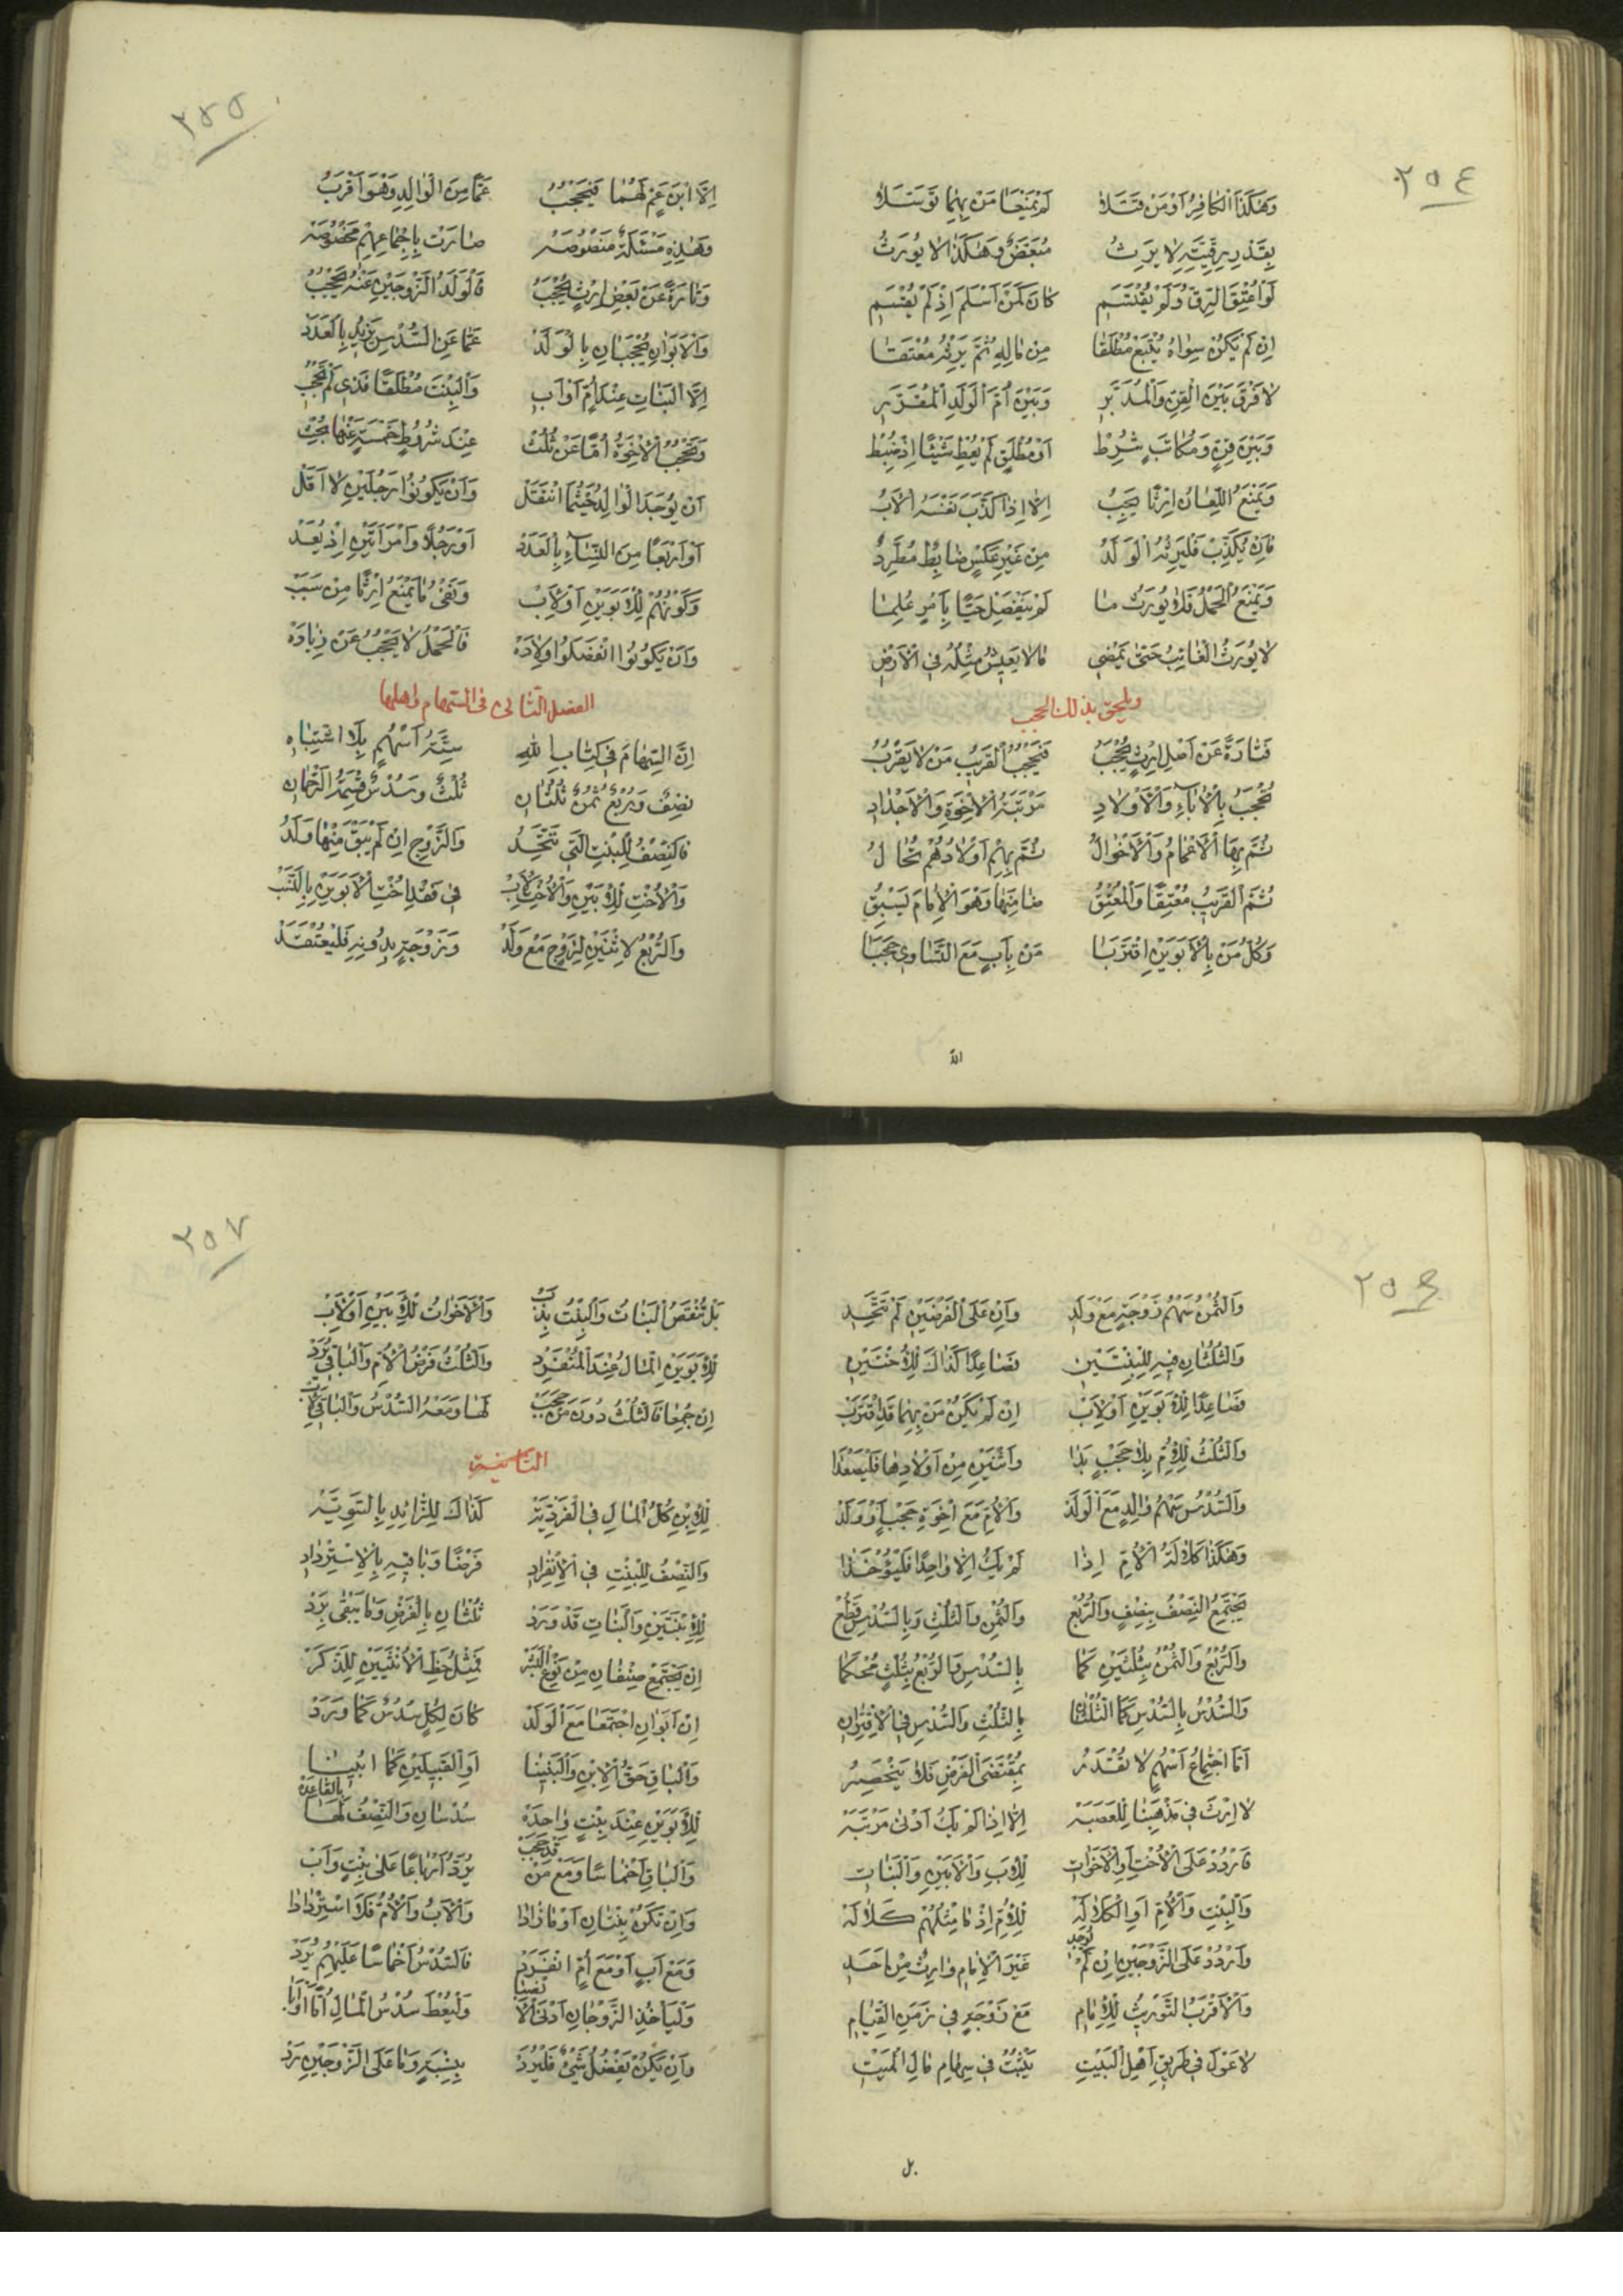 ٢٥٤
وَهٰكَذَا الْكَافِرُ اَوْ مَنْ قَتَلَا لَمْ يَمْنَعَا مَنْ بِهِمَا تَوَسَّلَا
بِقَدْرِ رِقِّيَّتِهِ لَا يَرِثُ مُبَعَّضٌ وَهٰكَذَا لَا يُورَثُ
لَوْ اُعْتِقَ الرِّقُّ وَلَمْ يُقْتَسَمِ كَانَ كَمَنْ اَسْلَمَ اِذْ لَمْ يُقْسَمِ
اِنْ لَمْ يَكُنْ سِوَاهُ يُبْتَعْ مُطْلَقَا مِنْ مَالِهِ ثُمَّ يَرِثْهُ مُعْتَقَا
لَا فَرْقَ بَيْنَ الْقِنِّ وَالْمُدَبَّرِ وَبَيْنَ اُمِّ الْوَلَدِ الْمُقَرَّرِ
وَبَيْنَ قِنٍّ وَمُكَاتَبٍ شُرِطْ اَوْ مُطْلَقٍ لَمْ يُعْطِ شَيْئًا اِذْ ضُبِطْ
وَيَمْنَعُ اللِّعَانُ اِرْثًا يَجِبُ اِلَّا اِذَا كَذَّبَ نَفْسَهُ الْاَبُ
فَاِنْ يُكَذِّبْ فَلْيَرِثْهُ الْوَلَدُ مِنْ غَيْرِ عَكْسٍ ضَابِطٌ مُطَّرِدُ
وَيَمْنَعُ الْحَمْلُ فَلَا يُورَثُ مَا لَمْ يَنْفَصِلْ حَيًّا بِاَمْرٍ عُلِمَا
لَا يُورَثُ الْغَائِبُ حَتَّى يَمْضِي مَا لَا يَعِيشُ مِثْلُهُ فِي الْاَرْضِ
ويلحق بذلك الحجب
فَتَارَةً عَنْ اَصْلِ اِرْثٍ يُحْجَبُ فَيَحْجُبُ الْقَرِيبُ مَنْ لَا يَقْرُبُ
تُحْجَبُ بِالْاٰبَاءِ وَالْاَوْلَادِ مَرْتَبَةُ الْاِخْوَةِ وَالْاَجْدَادِ
ثُمَّ بِهَا الْاَعْمَامُ وَالْاَخْوَالُ ثُمَّ بِهِمْ اَوْلَادُهُمْ تُخَالُ
ثُمَّ الْقَرِيبُ مُعْتِقًا وَالْمُعْتِقُ ضَامِنَهَا وَهْوَ الْاِمَامَ يَسْبِقُ
وَكُلُّ مَنْ بِالْاَبَوَيْنِ اقْتَرَبَا مَنْ بِاَبٍ مَعَ التَّسَاوِي حَجَبَا
الّا
٢٥٥
اِلَّا ابْنَ عَمٍّ لَهُمَا فَيَحْجُبُ عَمًّا مِنَ الْوَالِدِ وَهْوَ اَقْرَبُ
وَهٰذِهِ مَسْئَلَةٌ مَنْصُوصَهْ صَارَتْ بِاِجْمَاعِهِمْ مَخْصُوصَهْ
وَتَارَةً عَنْ بَعْضِ اِرْثٍ يُحْجَبُ فَالْوَلَدُ الزَّوْجَيْنِ عَنْهُ يَحْجُبُ
وَالْاَبَوَانِ يُحْجَبَانِ بِالْوَلَدْ عَمَّا عَنِ السُّدْسِ يَزِيدُ بِالْعَدَدْ
اِلَّا الْبَنَاتِ عِنْدَ اُمٍّ اَوْ اَبِ وَالْبِنْتَ مُطْلَقًا فَذِي لَمْ تَحْجُبِ
وَتَحْجُبُ الْاِخْوَةُ اُمًّا عَنْ ثُلُثْ عِنْدَ شُرُوطٍ خَمْسَةٍ عَنْهَا بُحِثْ
اَنْ يُوجَدَ الْوَالِدُ حَيْثُمَا انْتَقَلْ وَاَنْ يَكُونُوا رَجُلَيْنِ لَا اَقَلّْ
اَوْ اَرْبَعًا مِنَ النِّسَاءِ بِالْعَدَدْ اَوْ رَجُلًا وَامْرَاَتَيْنِ اِذْ يُعَدّْ
وَكَوْنُهُمْ لِلْاَبَوَيْنِ اَوْ لِاَبْ وَنَفْيُ مَا يَمْنَعُ اِرْثًا مِنْ سَبَبْ
وَاَنْ يَكُونُوا انْفَصَلُوا وِلَادَهْ فَالْحَمْلُ لَا يَحْجُبُ عَنْ زِيَادَهْ
الفصل الثانى فى السهام واهلها
اِنَّ السِّهَامَ فِي كِتَابِ اللهِ سِتَّةُ اَسْهُمٍ بِلَا اشْتِبَاهِ
نِصْفٌ وَرُبْعٌ ثُمْنٌ ثُلُثَانِ ثُلْثٌ وَسُدْسٌ قِسْمَةُ الرَّحْمٰنِ
فَالنِّصْفُ لِلْبِنْتِ الَّتِي تَتَّحِدُ وَالزَّوْجِ اِنْ لَمْ يَبْقَ مِنْهَا وَلَدُ
وَالْاُخْتِ لِلْاَبَيْنِ وَالْاُخْتِ لِاَبْ فِي فَقْدِ اُخْتِ الْاَبَوَيْنِ بِالنَّسَبْ
وَالرُّبْعُ لِاثْنَيْنِ لِزَوْجٍ مَعْ وَلَدْ وَزَوْجَةٍ بِدُونِهِ فَلْيُعْتَقَدْ
٢٥٦
وَالثُّمْنُ سَهْمُ زَوْجَةٍ مَعْ وَلَدِ وَاِنْ عَلَى الْفَرْضَيْنِ لَمْ تَتَّحِدِ
وَالثُّلُثَانِ فِيهِ لِلْبِنْتَيْنِ فَصَاعِدًا كَذَاكَ لِلْاُخْتَيْنِ
فَصَاعِدًا لِلْاَبَوَيْنِ اَوْ لِاَبْ اِنْ لَمْ يَكُنْ مَنْ بِهِمَا قَدِ اقْتَرَبْ
وَالثُّلْثُ لِلْاُمِّ بِلَا حَجْبٍ بَدَا وَاثْنَيْنِ مِنْ اَوْلَادِهَا فَلْيُصْعَدَا
وَالسُّدْسُ سَهْمُ وَالِدٍ مَعَ الْوَلَدْ وَالْاُمِّ مَعَ اِخْوَةِ حَجْبٍ اَوْ وَلَدْ
وَهٰكَذَا كَلَالَةُ الْاُمِّ اِذَا لَمْ يَكُ اِلَّا وَاحِدًا فَلْيُؤْخَذَا
يَجْتَمِعُ النِّصْفُ بِنِصْفٍ وَالرُّبْعْ وَالثُّمْنِ وَالثُّلْثِ وَبِالسُّدْسِ قُطِعْ
وَالرُّبْعُ وَالثُّمْنُ بِثُلْثَيْنِ كَمَا بِالسُّدْسِ وَالرُّبْعُ بِثُلْثٍ مُحْكَمَا
وَالسُّدْسُ بِالسُّدْسِ كَمَا الثُّلْثَانِ بِالثُّلْثِ وَالسُّدْسِ فِي الْاِقْتِرَانِ
اَمَّا اجْتِمَاعُ اَسْهُمٍ لَا تُقْدَرُ بِمُقْتَضَى الْفَرْضِ فَلَا يَنْحَصِرُ
لَا اِرْثَ فِي مَذْهَبِنَا لِلْعَصَبَهْ اِلَّا اِذَا لَمْ يَكُ اَدْنٰى مَرْتَبَهْ
فَارْدُدْ عَلَى الْاُخْتِ وَالْاَخَوَاتِ لِلْاَبِ وَالْاَبَيْنِ وَالْبَنَاتِ
وَالْبِنْتِ وَالْاُمِّ اَوِ الْكَلَالَهْ لِلْاُمِّ اِذْ مَا مِثْلُهُمْ كَلَالَهْ
وَارْدُدْ عَلَى الزَّوْجَيْنِ اِنْ لَمْ تُوجَدِ غَيْرَ الْاِمَامِ وَارِثٌ مِنْ اَحَدِ
وَالْاَقْرَبُ التَّوْرِيثُ لِلْاِمَامِ مَعْ زَوْجَةٍ فِي زَمَنِ الْقِيَامِ
لَا عَوْلَ فِي طَرِيقِ اَهْلِ الْبَيْتِ يَثْبُتُ فِي سِهَامِ مَالِ الْمَيْتِ
بل
٢٥٧
بَلْ تُنْقَصُ الْبَنَاتُ وَالْبِنْتُ بِذَبْ وَالْاَخَوَاتُ لِلْاَبَيْنِ اَوْ لِاَبْ
لِلْاَبَوَيْنِ الْمَالُ عِنْدَ الْمُنْفَرِدْ وَالثُّلْثُ فَرْضُ الْاُمِّ وَالْبَاقِي يُرَدّْ
اِنْ جُمِعَا فَالثُّلْثُ دُونَ مَنْ حَجَبْ لَهَا وَمَعَهُ السُّدْسُ وَالْبَاقِي لِاَبْ
الثانية
لِلْاِبْنِ كُلُّ الْمَالِ فِي الْفَرْدِيَّهْ كَذَاكَ لِلزَّائِدِ بِالسَّوِيَّهْ
وَالنِّصْفُ لِلْبِنْتِ فِي الْاِنْفِرَادِ فَرْضًا وَبَاقِيهِ بِالْاِسْتِرْدَادِ
لِلْاِبْنَتَيْنِ وَالْبَنَاتِ قَدْ وَرَدْ ثُلْثَانِ بِالْفَرْضِ وَمَا يَبْقٰى يُرَدّْ
اِنْ يَجْتَمِعْ صِنْفَانِ مِنْ نَوْعِ الْبَشَرْ فَمِثْلُ حَظِّ الْاُنْثَيَيْنِ لِلذَّكَرْ
اِنْ اَبَوَانِ اجْتَمَعَا مَعَ الْوَلَدْ كَانَ لِكُلٍّ سُدُسٌ كَمَا وَرَدْ
وَالْبَاقِ حَقُّ الْاِبْنِ وَالْبَنِينَا اَوِ الْقَبِيلَيْنِ كَمَا اُبِينَا
لِلْاَبَوَيْنِ عِنْدَ بِنْتٍ وَاحِدَهْ سُدْسَانِ وَالنِّصْفُ لَهَا بِالْقَاعِدَهْ
وَالْبَاقِ اَخْمَاسًا وَمَعْ مَنْ قَدْ حَجَبْ يُرَدُّ اَرْبَاعًا عَلَى بِنْتٍ وَاَبْ
وَاِنْ تَكُنْ بِنْتَانِ اَوْ مَا زَادَا وَالْاَبُ وَالْاُمُّ فَلَا اسْتِرْدَادَا
وَمَعَ اَبٍ اَوْ مَعَ اُمٍّ انْفَرَدْ فَالسُّدْسُ اَخْمَاسًا عَلَيْهِمْ يُرَدّْ
وَلْيَاْخُذِ الزَّوْجَانِ اَدْنَى الْاَنْصِبَا وَلْيُعْطَ سُدْسُ الْمَالِ اُمًّا اَوْ اَبَا
وَاِنْ يَكُنْ يَفْضُلُ شَيْءٌ فَلْيُرَدّْ بِنِسْبَةٍ وَمَا عَلَى الزَّوْجَيْنِ رَدّْ